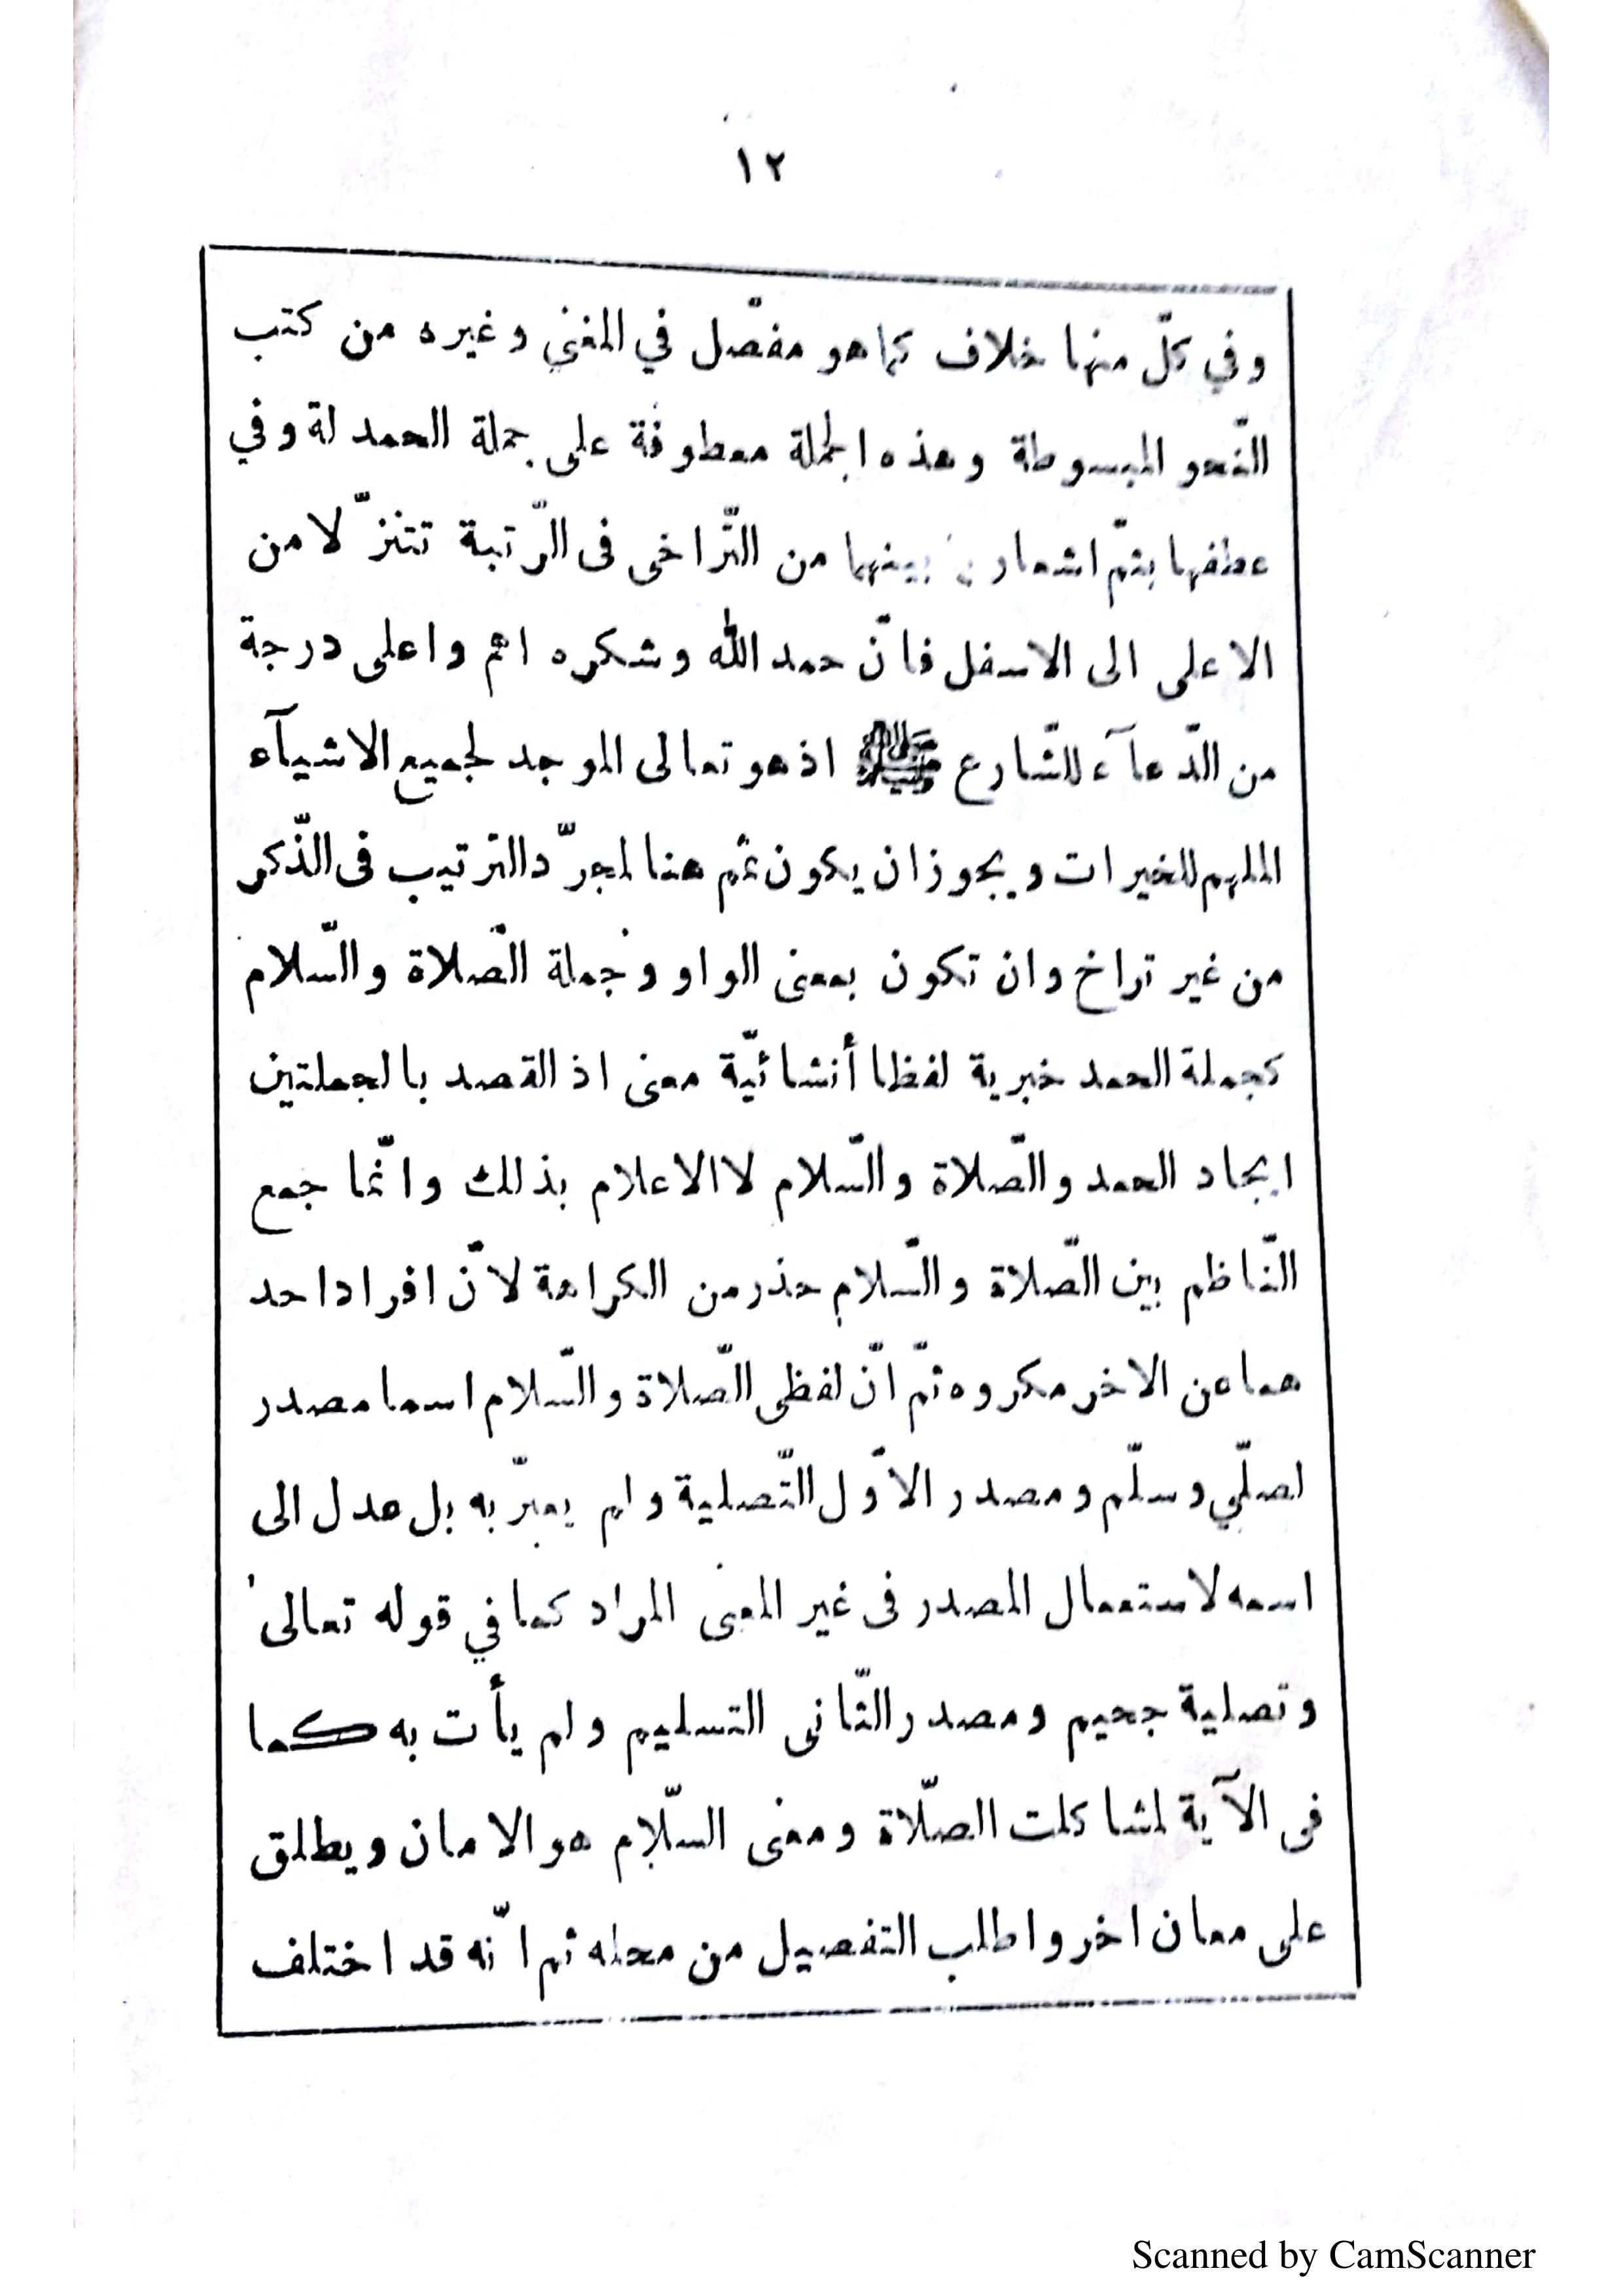 ١٢
وفي كلّ منها خلاف كما هو مفصّل في المغني وغيره من كتب
النّحو المبسوطة وهذه الجملة معطوفة على جملة الحمد لة وفي
عطفها بثمّ اشعار بينهما من التّراخى فى الرّتبة تتنزّلا من
الاعلى الى الاسفل فانّ حمد الله وشكره اهم واعلى درجة
من الدّعآء للشّارع ﷺ اذ هو تعالى الموجد لجميع الاشيآء
الملهم للخيرات ويجوز ان يكون ثم هنا لمجرّد الترتيب فى الذّكر
من غير تراخ وان تكون بمعنى الواو وجملة الصّلاة والسّلام
كجملة الحمد خبرية لفظا أنشائيّة معنى اذ القصد بالجملتين
ايجاد الحمد والصّلاة والسّلام لا الاعلام بذلك وانّما جمع
النّاظم بين الصّلاة والسّلام حذر من الكراهة لانّ افراد احد
هما عن الاخر مكروه ثمّ انّ لفظى الصّلاة والسّلام اسما مصدر
لصلّي وسلّم ومصدر الاوّل التّصلية ولم يعبّر به بل عدل الى
اسمه لاستعمال المصدر فى غير المعنى المراد كما في قوله تعالى
وتصلية جحيم ومصدر الثّانى التسليم ولم يأت به كما
فى الآية لمشاكلت الصّلاة ومعنى السّلام هو الامان ويطلق
على معان اخر واطلب التفصيل من محله ثم انّه قد اختلف
Scanned by CamScanner